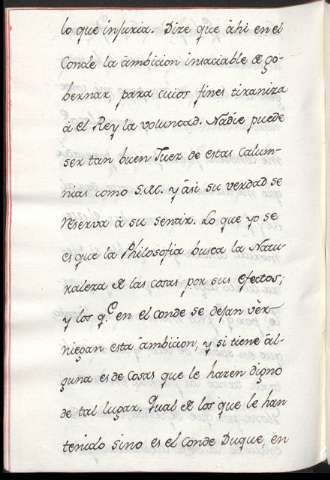 lo que injuria. Dize que àhi en el
Conde la ambicion insaciable de go-
bernar, para cuios fines tiraniza
à el Rey la voluntad. Nadie puede
ser tan buen Juez de estas Calum-
nias como S.M. y àsi su verdad se
reserva à su sentir. Lo que yo se
es que la Philosofia busca la Natu-
raleza de las cosas por sus efectos;
y los q.e en el conde se dejan vèr
niegan esta ambicion, y si tiene àl-
guna es de cosas que le hazen digno
de tal lugar. Qual de los que le han
tenido sino es el Conde Duque, en